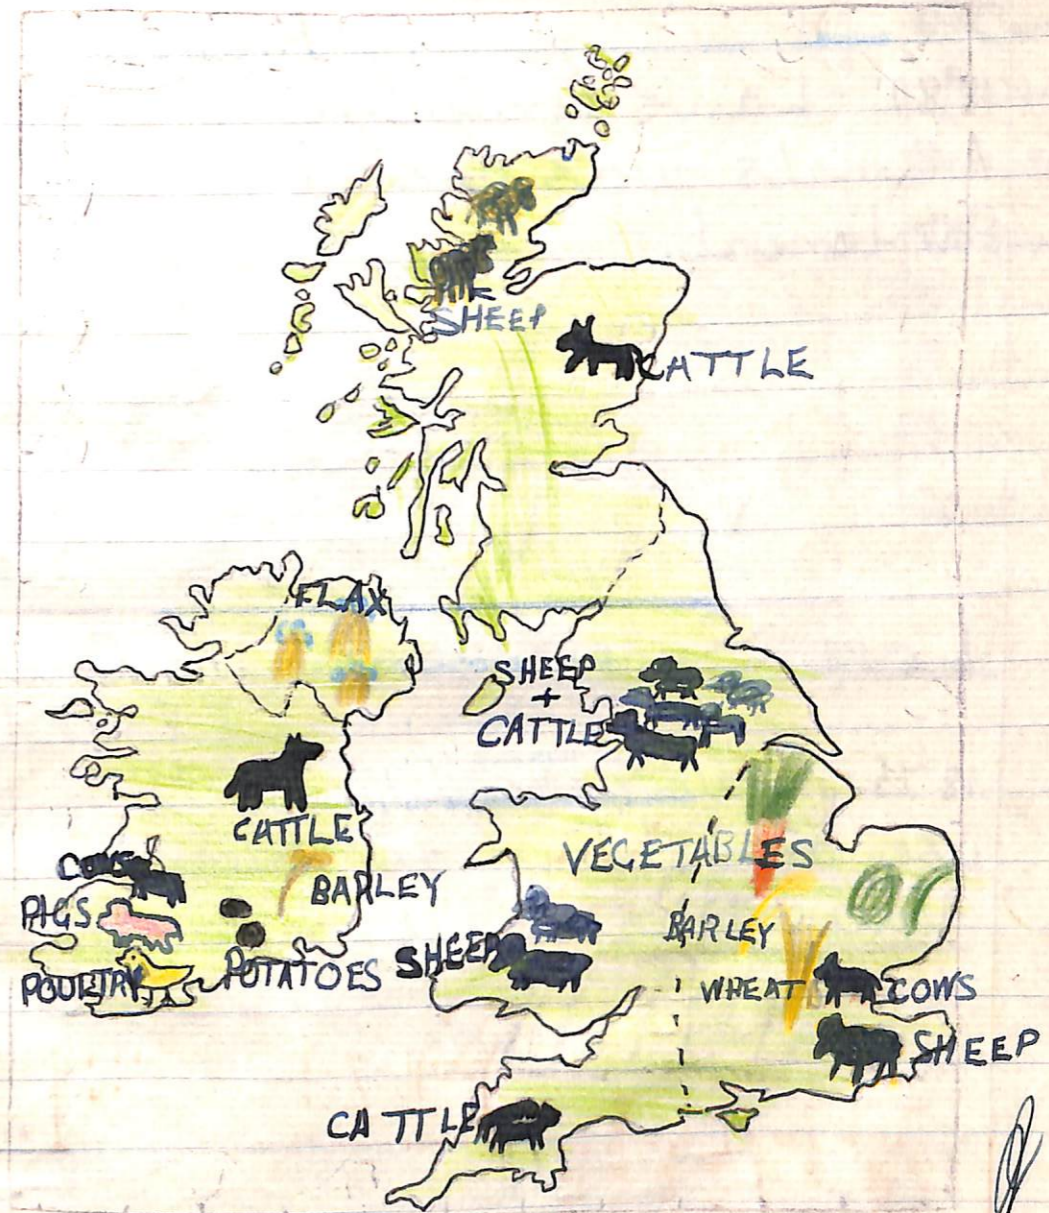 SHEEP
CATTLE
FLAX
SHEEP
+
CATTLE
CATTLE
VEGETABLES
COWS
BARLEY
PIGS
BARLEY
POULTRY
POTATOES
SHEEP
WHEAT
COWS
SHEEP
CATTLE